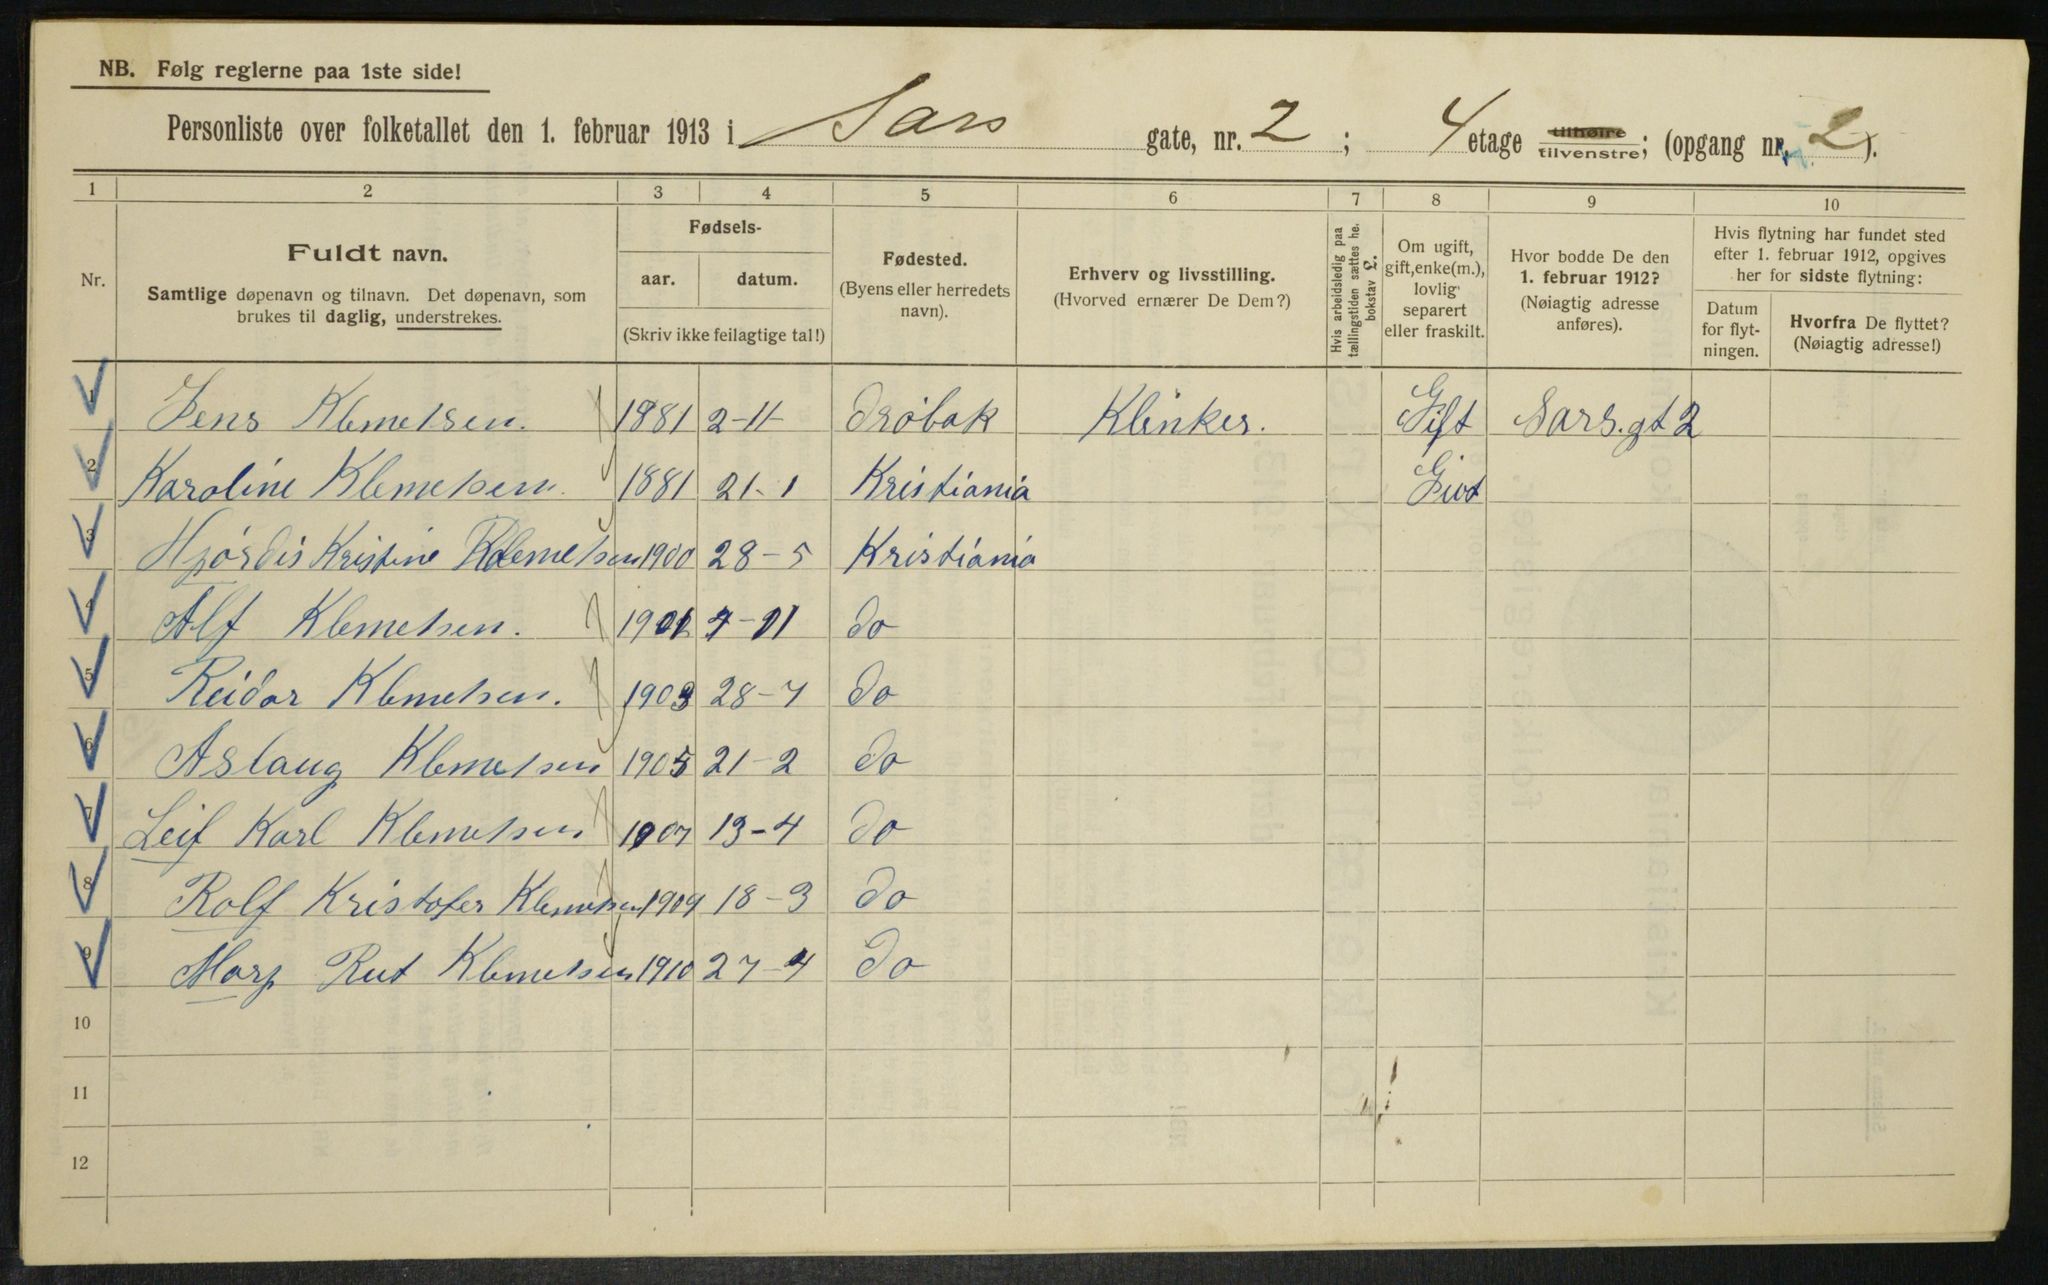 NB. Følg reglerne paa 1ste side!
Personliste over folketallet den 1. februar 1913 i Sars gate, nr. 2 ; 4 etage tilhøire tilvenstre; (opgang nr. 2).
1 2 3 4 5 6 7 8 9 10
Nr.
Fuldt navn.
Samtlige døpenavn og tilnavn. Det døpenavn, som
brukes til daglig, understrekes.
Fødsels-
aar. datum.
(Skriv ikke feilagtige tal!)
Fødested.
(Byens eller herredets
navn).
Erhverv og livsstilling.
(Hvorved ernærer De Dem?)
Hvis arbeidsledig paa
tællingstiden sættes he.
bokstav L.
Om ugift,
gift, enke(m.),
lovlig
separert
eller fraskilt.
Hvor bodde De den
1. februar 1912?
(Nøiagtig adresse
anføres).
Hvis flytning har fundet sted
efter 1. februar 1912, opgives
her for sidste flytning:
Datum
for flyt-
ningen.
Hvorfra De flyttet?
(Nøiagtig adresse!)
1 Jens Klemetsen. 1881 2-11 Drøbak Klinker. Gift Sars. gt 2
2 Karoline Klemetsen. 1881 21-1 Kristiania Givt
3 Hjørdis Kristine Klemetsen 1900 28-5 Kristiania
4 Alf Klemetsen. 1901 7-11 do
5 Reidar Klemetsen. 1903 28-7 do
6 Aslaug Klemetsen 1905 21-2 do
7 Leif Karl Klemetsen 1907 13-4 do
8 Rolf Kristofer Klemetsen 1909 18-3 do
9 Mary Rut Klemetsen 1910 27-4 do
10
11
12